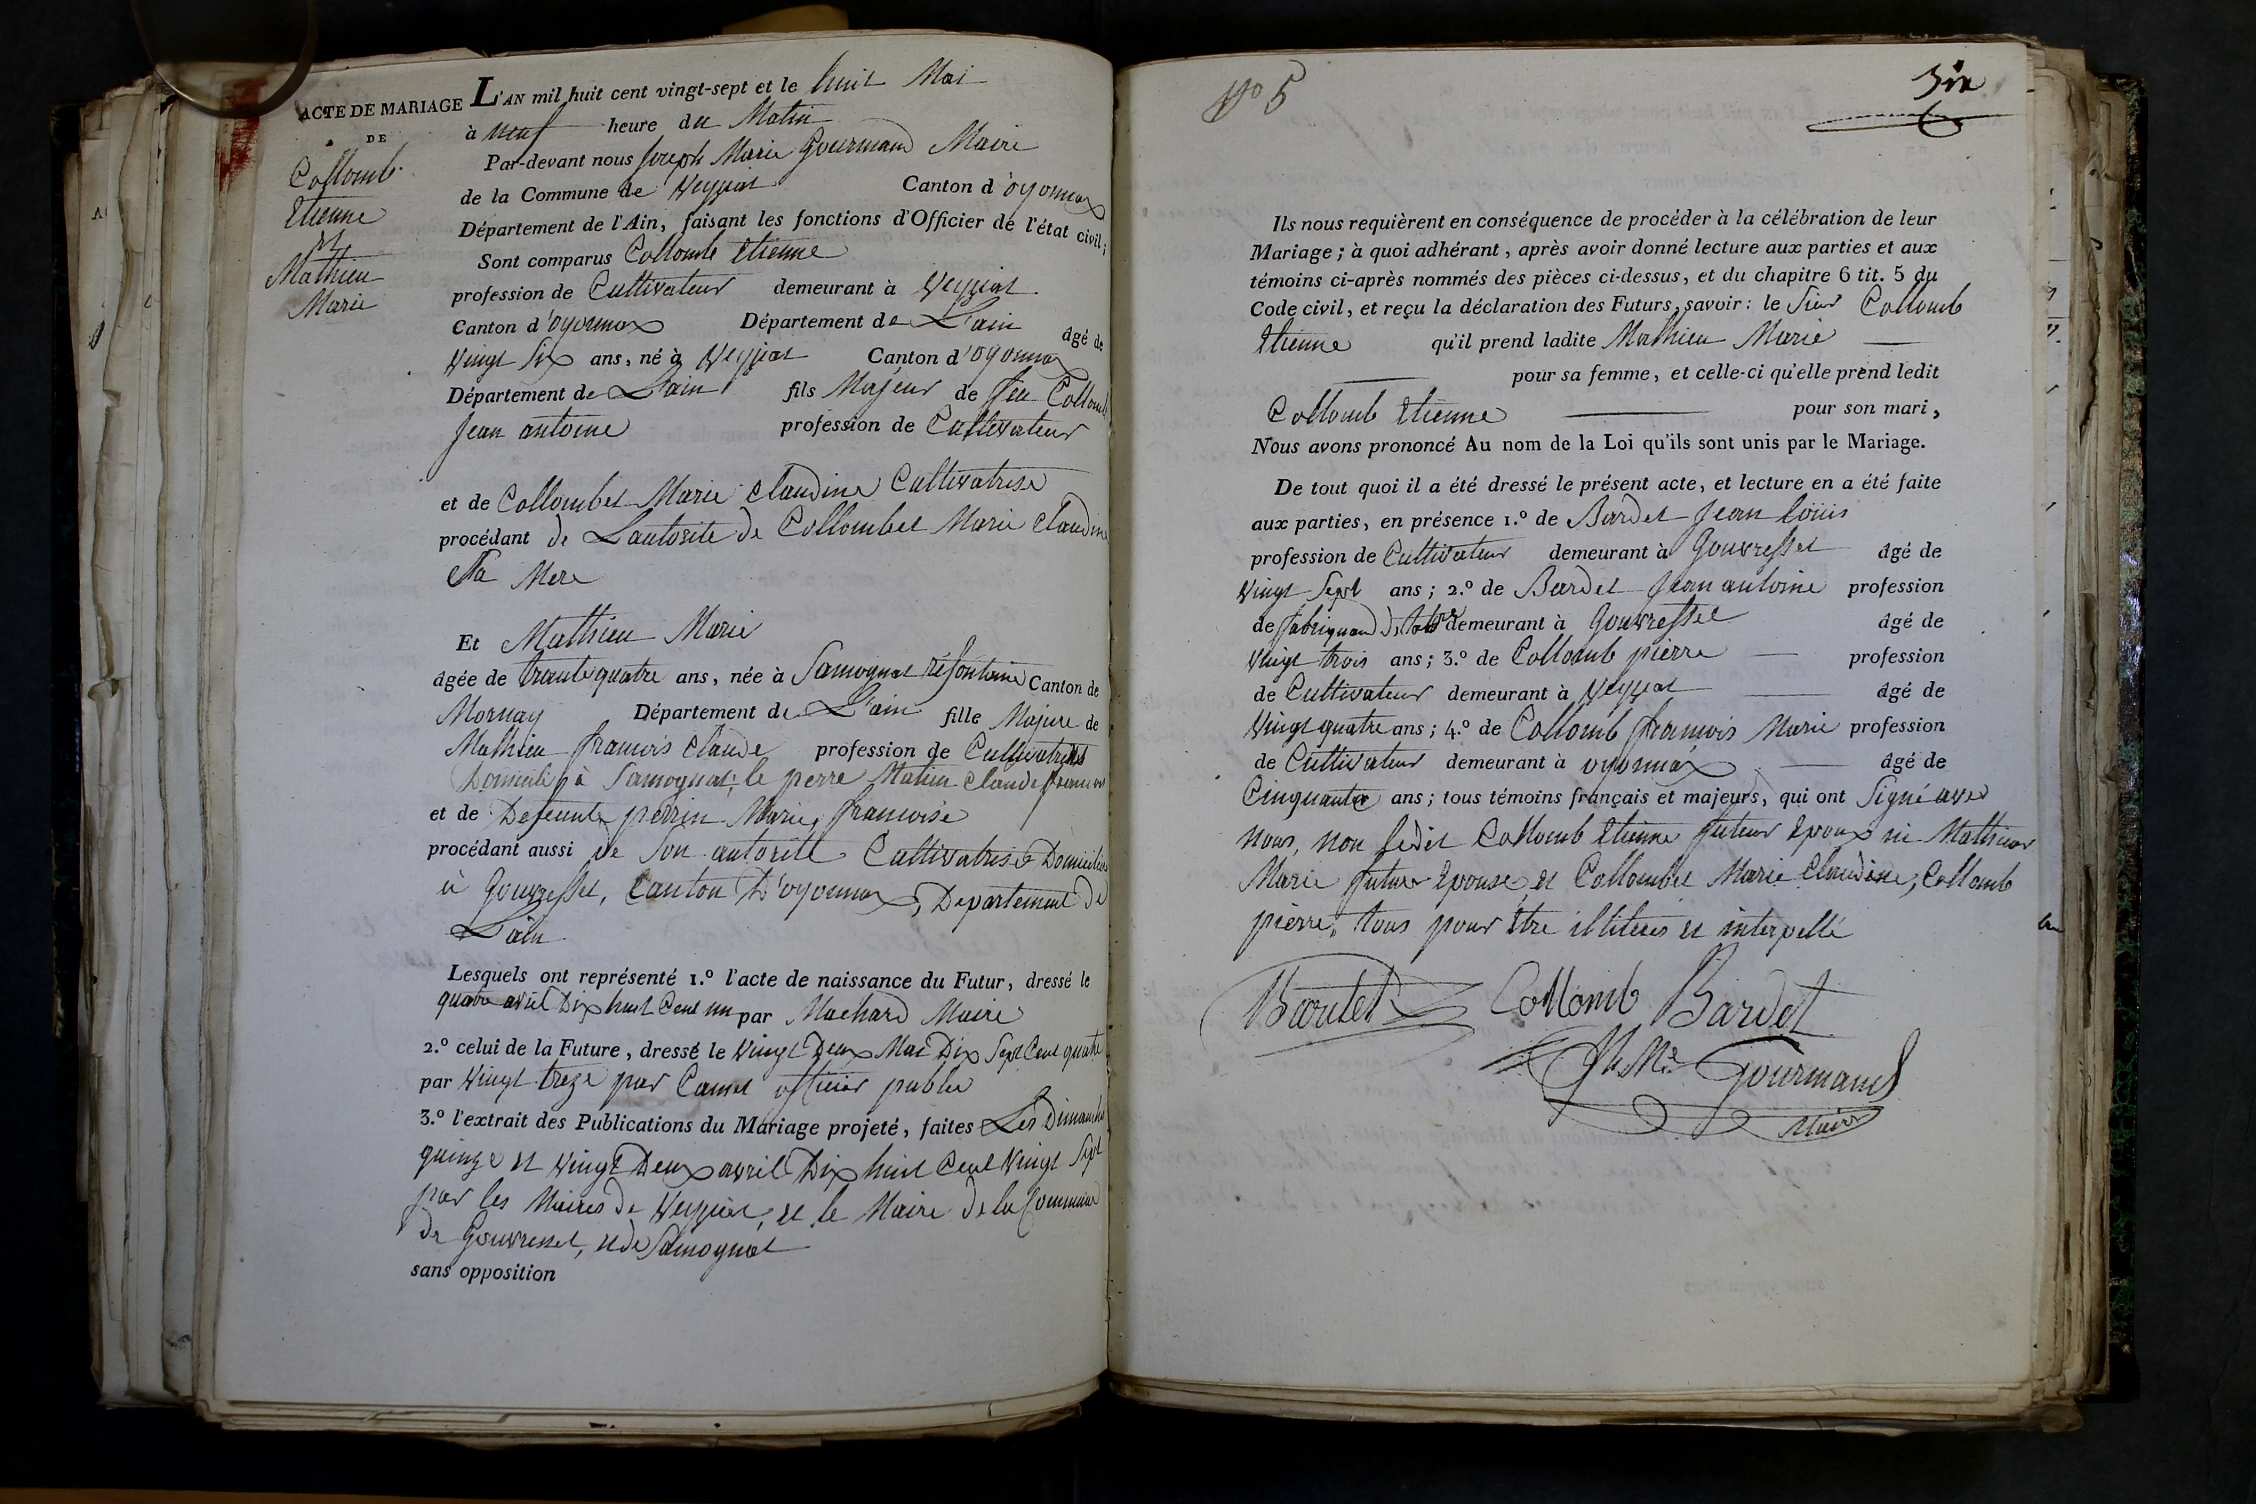 ACTE DE MARIAGE
DE
Collomb
Etienne
et
Mathieu
Marie
L'AN mil huit cent vingt-sept et le huit Mai
à neuf heure du Matin
Par-devant nous Joseph Marie Gourmand Maire
de la Commune de Veyziat Canton d'oyonnax
Département de l'Ain, faisant les fonctions d'Officier de l'état civil;
Sont comparus Collomb Etienne
profession de Cultivateur demeurant à Veyziat
Canton d'oyonnax Département de L'ain âgé de
Vingt Six ans, né à Veyziat Canton d'oyonnax
Département de L'ain fils Majeur de feu Collomb
Jean antoine profession de Cultivateur
et de Collombet Marie Claudine Cultivatrise
procédant de Lautorité de Collombet Marie Claudine
Sa Mere
Et Mathieu Marie
âgée de trante quatre ans, née à Samognat Canton de
Mornay Département de L'ain fille Majure de
Mathieu francois Claude profession de
à Samognat, le perre Claude francois
et de Defeunte perrin Marie francoise
procédant aussi de Son autorité Cultivatrise Domiciliée
à Gouvresset, Canton D'oyonnax, Departement de
L'ain
Lesquels ont représenté 1.º l'acte de naissance du Futur, dressé le
quatre avril Dix huit Cent un par Machard Maire
2.º celui de la Future, dressé le Vingt Deux Mai Dix Sept Cent quatre
par Vingt treze par officier public
3.º l'extrait des Publications du Mariage projeté, faites Les Dimanche
quinze et Vingt Deux avril Dix huit Cent Vingt Sept
par les Maires de Veyziat, et le Maire de la Commune
de Gouvresset, et de Samognat
sans opposition
Nº 5
Six
Ils nous requièrent en conséquence de procéder à la célébration de leur
Mariage; à quoi adhérant, après avoir donné lecture aux parties et aux
témoins ci-après nommés des pièces ci-dessus, et du chapitre 6 tit. 5 du
Code civil, et reçu la déclaration des Futurs, savoir: le Sieur Collomb
Etienne qu'il prend ladite Mathieu Marie
pour sa femme, et celle-ci qu'elle prend ledit
Collomb Etienne pour son mari,
Nous avons prononcé Au nom de la Loi qu'ils sont unis par le Mariage.
De tout quoi il a été dressé le présent acte, et lecture en a été faite
aux parties, en présence 1.º de Bardet Jean Louis
profession de Cultivateur demeurant à Gouvresset âgé de
Vingt Sept ans; 2.º de Bardet Jean antoine profession
de demeurant à Gouvresset âgé de
Vingt trois ans; 3.º de Collomb pierre profession
de Cultivateur demeurant à Veyziat âgé de
Vingt quatre ans; 4.º de Collomb francois Marie profession
de Cultivateur demeurant à oyonnax âgé de
Cinquante ans; tous témoins français et majeurs, qui ont Signé avec
nous, non ledit Collomb Etienne futeur Epoux ni Mathieu
Marie future Epouse, et Collombet Marie Claudine, Collomb
pierre, tous pour être illiterés et interpellé
Bardet Collomb Bardet
Jh Mie Gourmand
Maire